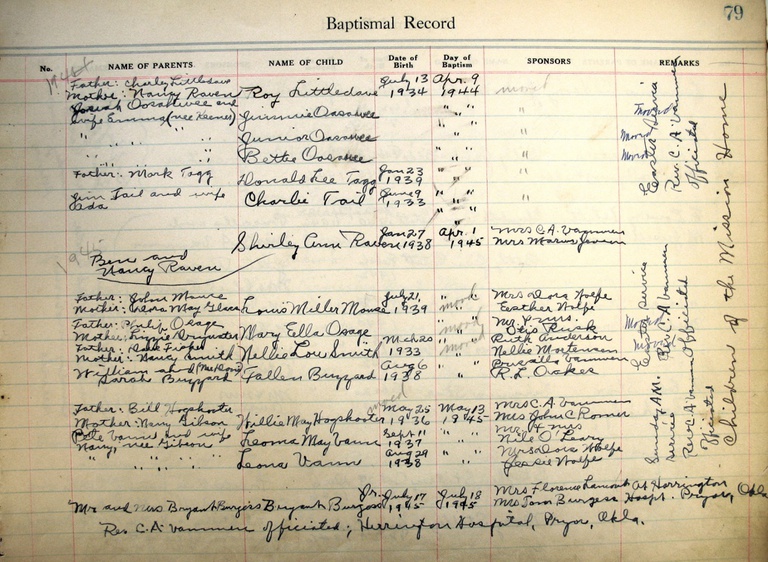 79
Baptismal Record
No. NAME OF PARENTS NAME OF CHILD Date of Birth Day of Baptism SPONSORS REMARKS
1944
Father: Charley Littledave July 13 Apr. 9
Mother: Nancy Raven Roy Littledave 1934 1944 moved
Josiah Oosahwee and
wife Emma (nee Keener) Jimmie Oosahwee " " " Moved
" " " Junior Oosahwee " " " Moved
" " " Bettie Oosahwee " " " Moved
Father: Mark Tagg Donald Lee Tagg Jan 23 1939 " " "
Jim Tail and wife Charlie Tail June 9 1933 " " "
Ada
Easter Service
Rev. C. A. Vammen
officiated
Children of the Mission Home
1945
Shirley Ann Raven Jan 27 1938 Apr. 1 1945 Mrs C.A. Vammen
Mrs Marius
Ben and
Nancy Raven
Father: John Mouse July 21, Mrs Dora Wolfe
Mother: Louis Miller Mouse 1939 moved Esther Wolfe
Father: Philip Osage Mr.
Mother: Mary Ella Osage moved Otis Rusk Moved
Father: March 20 Ruth Anderson
Mother: Nancy Smith Nellie Lou Smith 1933 moved Nellie Mortensen
William and Aug 6 Vammen
Sarah Buzzard Fallen Buzzard 1938 " " R. L. Oakes
Easter Service
Rev. C. A. Vammen
Officiated
Father: Bill Hogshooter moved May 25 May 13 Mrs C. A. Vammen
Mother: Nancy Gibson Willie May Hogshooter 1936 1945 Mrs John C Romer
Pete Vann and wife Sept 11 Mr. & Mrs
Nancy, nee Gibson Leona May Vann 1937 " " Nils O'Leary
" " " Aug 29 Mrs Dora Wolfe
Lena Vann 1938 " " Jessie Wolfe
Sunday A.M.
service
Rev. C. A. Vammen
officiated
Jr. July 17 July 18 Mrs Florence Lamont at Harrington
Mr and Mrs Bryant Burgess Bryant Burgess 1945 1945 Mrs Tom Burgess Hospt. Pryor, Okla
Rev C. A. Vammen officiated; Herrington Hospital, Pryor, Okla.